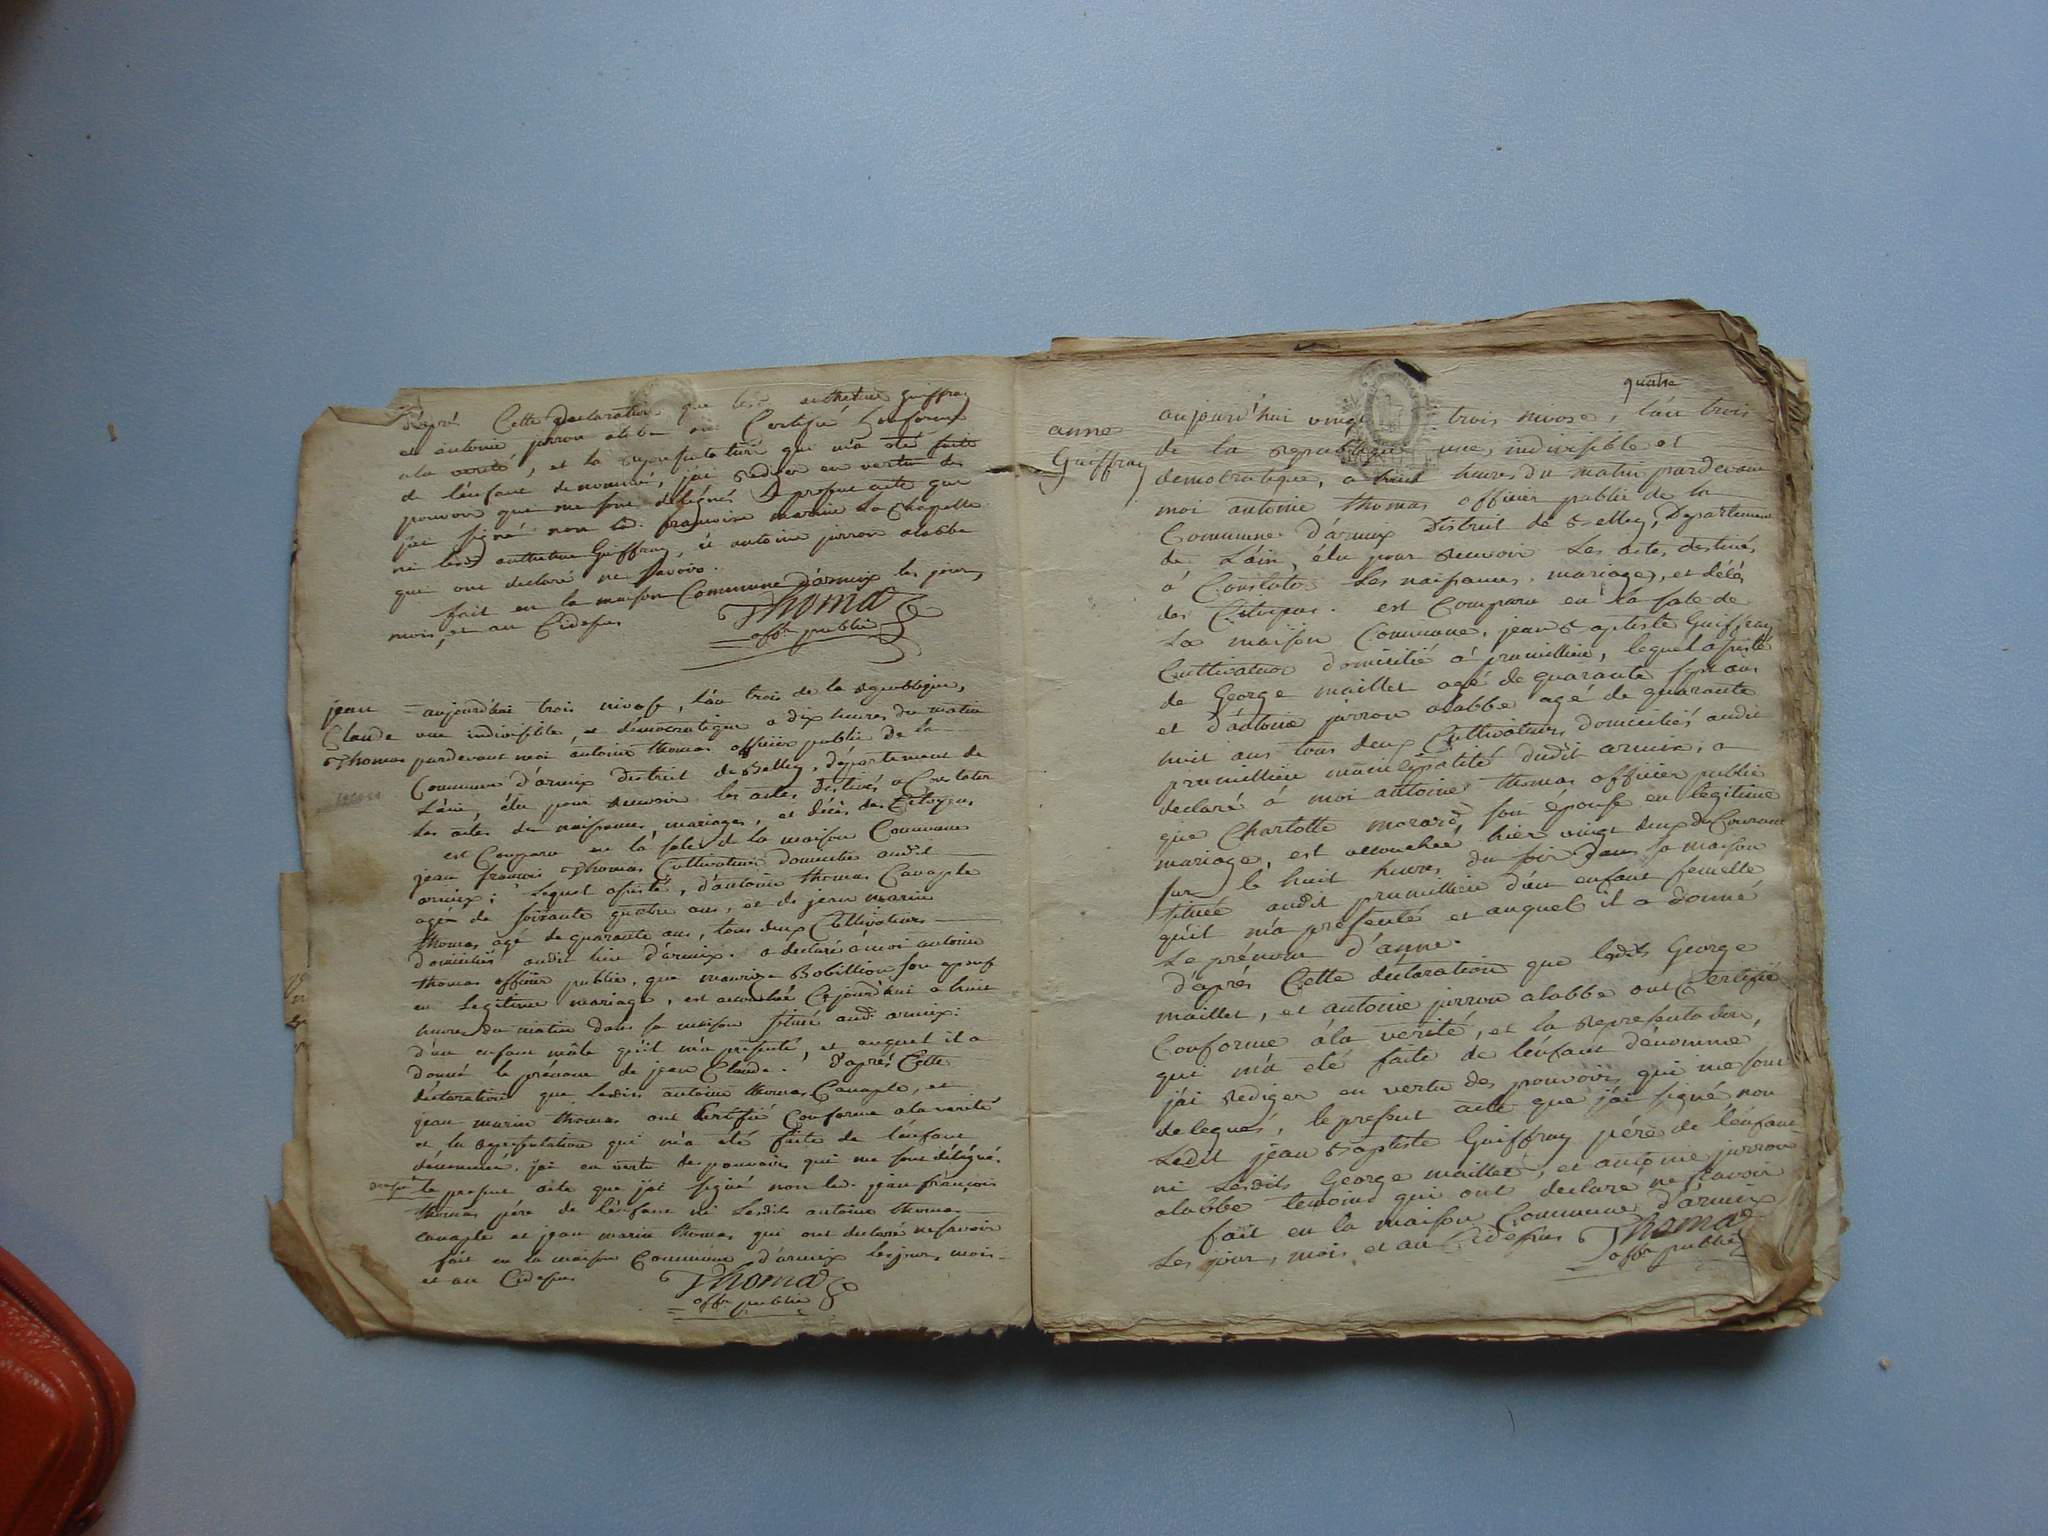 d'après Cette declaration que anthelme Guiffray
et antoine jurron alabbe ont Certifié Conforme
a la verité, et la représentation qui m'a été faite
de l'enfant denommé, j'ai rediger en vertu des
pouvoirs que me sont délégués le present acte que
j'ai signé non françoise marine La Chapelle
ni anthelme Guiffray, et antoine jurron alabbe
qui ont declaré ne savoir.
fait en la maison Commune d'armix les jour,
mois, et an Cidessus
Thomas
offr. public
jean
Claude
Thomas
aujourd'hui trois nivose, l'an trois de la republique,
une indivisible, et démocratique a dix heures du matin
pardevant moi antoine thomas officier public de la
Commune d'armix district de Belley, département de
l'ain, élu pour recevoir les actes destinés a Constater
les actes de naissances, mariages, et décès des Citoyens
est Comparu en la sale de la maison Commune
jean françois Thomas Cultivateur domicilié audit
armix; lequel assisté, d'antoine thomas Canaple
agée de soixante quatre ans, et de jean marin
thomas agé de quarante ans, tous deux Cultivateurs
domiciliés audit lieu d'armix. a declaré a moi antoine
thomas officier public, que Bobillion son epouse
en legitime mariage, est accouchée Cejourd'hui a huit
heures du matin dans sa maison situee aud. armix:
d'un enfant mâle qu'il m'a présenté, et auquel il a
donné le prénom de jean Claude. d'après Cette
déclaration que lesdits antoine thomas Canaple, et
jean marin thomas ont Certifié Conforme a la verité
et la representation qui m'a été faite de l'enfant
dénommé, j'ai en vertu des pouvoirs qui me sont délégués,
le present acte que j'ai signé non led. jean françois
thomas père de l'enfant ni lesdits antoine thomas
canaple et jean marin thomas qui ont declaré ne savoir
fait en la maison Commune d'armix les jour, mois
et an Cidessus
Thomas
offr. public
quatre
anne
Guiffray
aujourd'hui vingt trois nivose, l'an trois
de la republique une, indivisible et
démocratique, a huit heures du matin pardevant
moi antoine thomas officier public de la
Commune d'armix District de Belley, Departement
de L'ain, élu pour recevoir Les actes destinés
à Constater Les naissances, mariages, et décès
des Citoyens. est Comparu en la sale de
La maison Commune, jean Baptiste Guiffray
Cultivateur domicilié à prumillieu, lequel assisté
de George maillet agé de quarante sept ans
et d'antoine jurron alabbe agé de quarante
huit ans tous deux Cultivateurs domiciliés audit
prumillieu municipalité dudit armix; a
declaré à moi antoine thomas officier public
que Charlotte morard son épouse en legitime
mariage, est accouchée hier vingt deux du Courant
sur le huit heures du soir dans sa maison
située audit prumillieu d'un enfant femelle
qu'il m'a présenté et auquel il a donné
Le prénom d'anne.
d'après Cette déclaration que lesdits George
maillet, et antoine jurron alabbe ont Certifié
Conforme à la verité, et la representation,
qui m'a été faite de l'enfant dénommé,
j'ai rediger en vertu des pouvoirs qui me sont
delegués, le present acte que j'ai signé non
Ledit jean Baptiste Guiffray père de l'enfant
ni Lesdits George maillet, et antoine jurron
alabbe temoins qui ont declaré ne savoir
fait en la maison Commune d'armix
Les jour, mois et an Cidessus
Thomas
offr. public